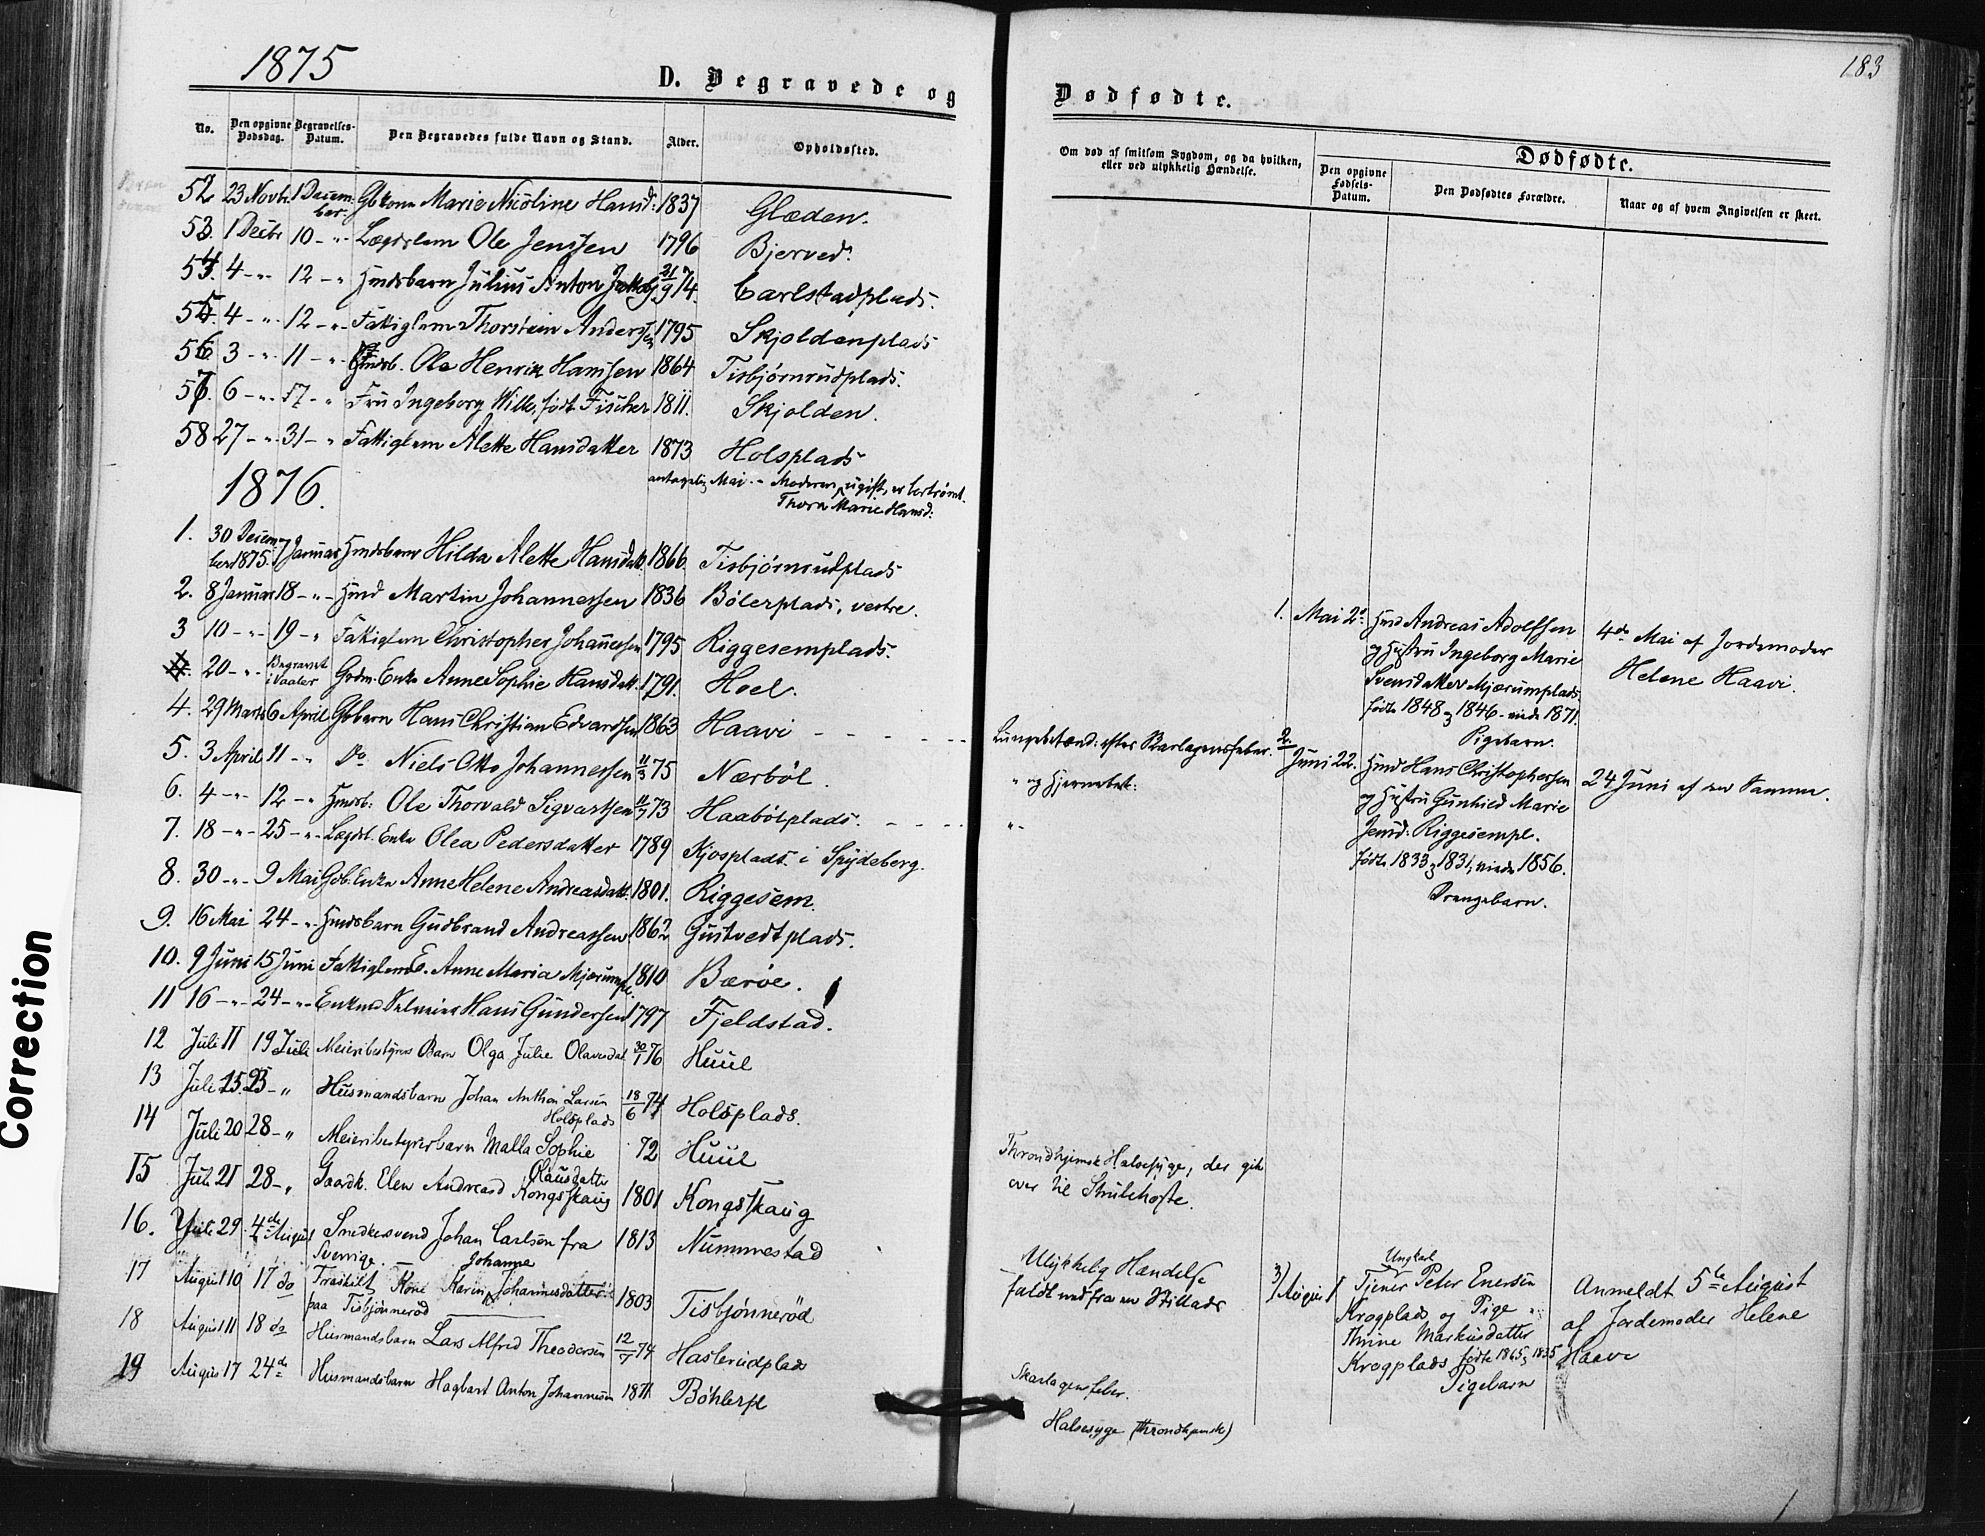 1875
D. Begravede og
No. Den opgivne Dødsdag. Begravelses-Datum. Den Begravedes fulde Navn og Stand. Alder. Opholdssted.
52 23 Novbr. 1 December Gbkone Marie Nicoline Hansd: 1837 Glæden.
53. 1 Decbr 10 - " - Lægdslem Ole Jenssen 1796 Bjerved.
54. 4 - " - 12 - " Husmdsbarn Julius Anton 21/9 74. Carlstadplads.
55. 4 - " - 12 - " - Fattiglem Thorstein Anderssen 1795 Skjoldenplads
56 3 - " - 11 - " Ole Henrik Hanssen 1864 Tisbjørnrudplads.
57. 6 - " - 17 - " Fru Ingeborg Wille, født Fischer 1811. Skjolden.
58 27 - " - 31 - " Fattiglem Alette Hansdatter 1873 Holsplads
antagelig Mai. - Moderen, ugift, er bortrømt.
Thora Marie Hansd:
1876.
1. 30 December 1875. 7 Januar Hmdsbarn Hilda Alette Hansdatt. 1866. Tisbjørnrudplads
2. 8 Januar 18 - " - Hmd Martin Johannessen 1836 Bølerplads, vestre.
3 10 - " - 19 - " Fattiglem Christopher Johannessen 1795 Riggesemplads.
20 - " - Begravet i Vaaler Grdm. Enke Anne Sophie Hansdatt. 1791. Hoel.
4. 29 Marts 6 April Gbbarn Hans Christian Edvardsen 1863 Haavi - - - - -
5. 3 April 11 - " Do Niels Otto Johannessen 11/3 75 Nærbøl.
6. 4 - " - 12 - " Hmdsb: Ole Thorvald Sigvartsen 73 Haabølplads. - - - -
7. 18 - " - 25 - " - Lægdsl. Enke Olea Pedersdatter 1789 Kjosplads i Spydeberg.
8. 30 - " - 9 Mai Gbb. Enke Anne Helene Andreasdatt. 1801. Riggesem.
9. 16 Mai 24 - " - Hmdsbarn Gudbrand Andreassen 1862 Gustvedtplads.
10. 9 Juni 15 Juni Fattiglem E. Anne Maria Mjærumpl. 1810 Bærøe.
11 16 - " - 24 - " - Enkemd Hans Gundersen 1797 Fjeldstad.
12 Juli 11 19 Juli Meieribestyrers Barn Olga Julie Olausdat. 30/1 76 Huul
13 Juli 15. 23 - " Husmandsbarn Johan Anthon Larsen Holsplads 18/6 74 Holsplads.
14 Juli 20 28 - " Meieribestyrerbarn Malla Sophie Olausdatter 72 Huul
15 Juli 21 28 - " Gaardk. Elen Andreasd Kongsskaug 1801 Kongsskaug
16. Juli 29 4de August Snedkersvend Johan Carlsen fra Sverrige. 1813 Nummestad
17 August 10 17 do Fraskilt Kone Karin Johanne Johannesdatter paa Tisbjønnerød 1803 Tisbjønnerød
18 August 11 18 do Husmandsbarn Lars Alfred Theodorsen 12/7 74 Haslerudplads
19 August 17 24de Husmandsbarn Hagbart Anton Johannesen 1871. Bøhlerpl
Correction
183
Dødfødte.
Om død af smitsom Sygdom, og da hvilken, eller ved ulykkelig Hændelse.
Dødfødte.
Den opgivne Fødsels-Datum. Den Dødfødtes Forældre. Naar og af hvem Angivelsen er skeet.
1. Mai 2. Hmd Andreas Adolfsen
og Hustru Ingeborg Marie
Svensdatter Mjærumplads
fødte 1848 & 1846 - viede 1871.
Pigebarn.
4de Mai af Jordemoder
Helene Haavi.
Lungebetænd: efter Skarlagensfeber.
" og Hjernebet:
" -
2. Juni 22. Hmd Hans Christophersen
og Hustru Gunhild Marie
Jensd: Riggesempl.
fødte 1833 & 1831, viede 1856.
Drengebarn.
24 Juni af den Samme.
Throndhjemsk Halssyge, der gik
over til Strubehoste.
Ulykkelig Hændelse
faldt ned fra en Stillads
3) August 1 Ungkarl
Tjener Peter Enersen
Krogplads og Pige
Thrine Markusdatter
Krogplads fødte 1865 & 1835
Pigebarn
Anmeldt 5te August
af Jordemoder Helene
Haavi
Skarlagensfeber.
Halssyge (throndhjemsk)